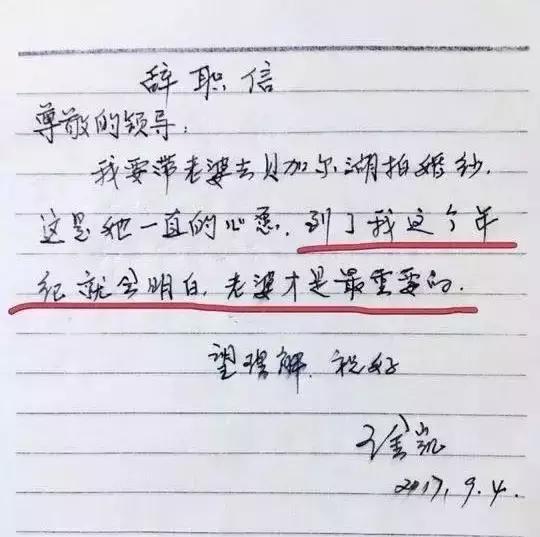 辞职信
尊敬的领导:
我要带老婆去贝加尔湖拍婚纱.
这是她一直的心愿.到了我这个年
纪就会明白.老婆才是最重要的.
望理解.祝好
凯
2017.9.4.